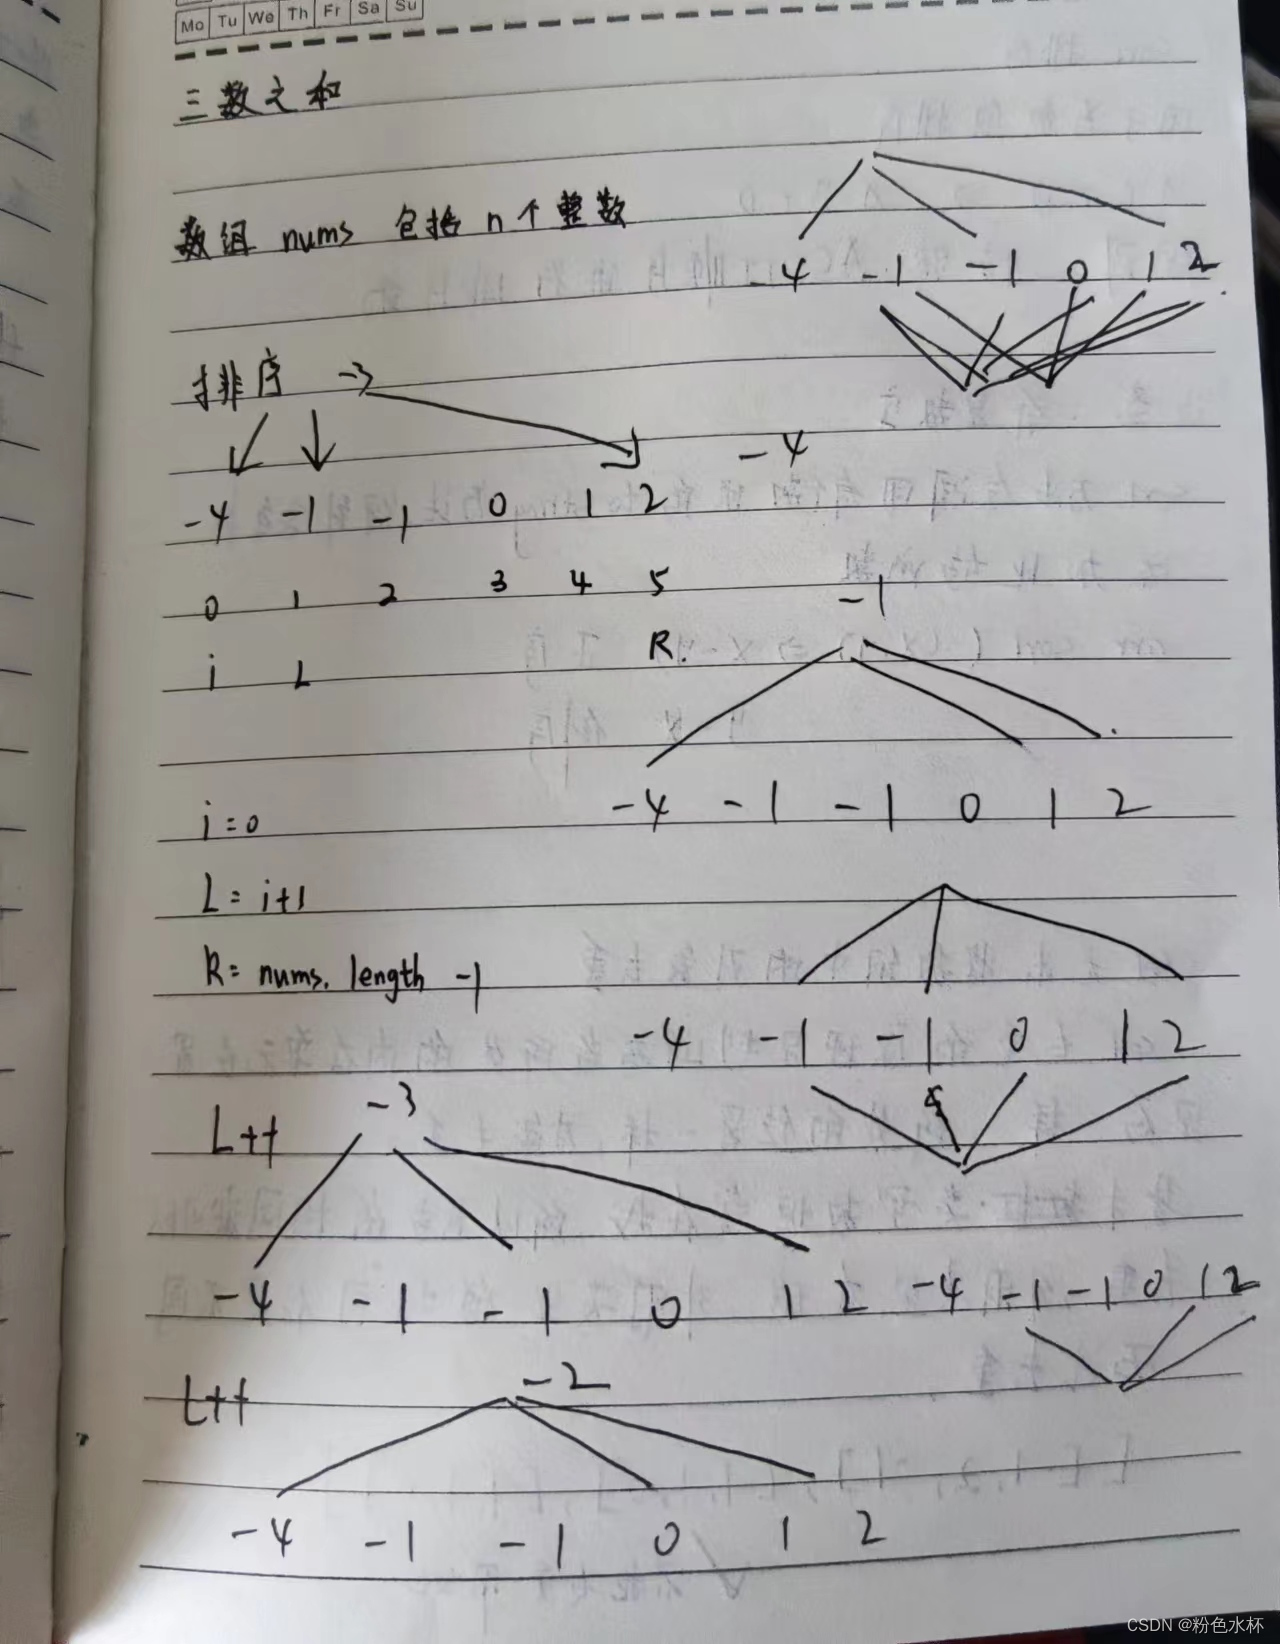 Mo Tu We Th Fr Sa Su
三数之和
数组 nums 包括 n个整数
-4 -1 -1 0 1 2
排序 -3
-4
-4 -1 -1 0 1 2
0 1 2 3 4 5
-1
i L R.
-4 -1 -1 0 1 2
i=0
L= i+1
R= nums. length -1
-4 -1 -1 0 1 2
L++ -3
-4 -1 -1 0 1 2
-4 -1 -1 0 1 2
L++ -2
-4 -1 -1 0 1 2
CSDN @粉色水杯